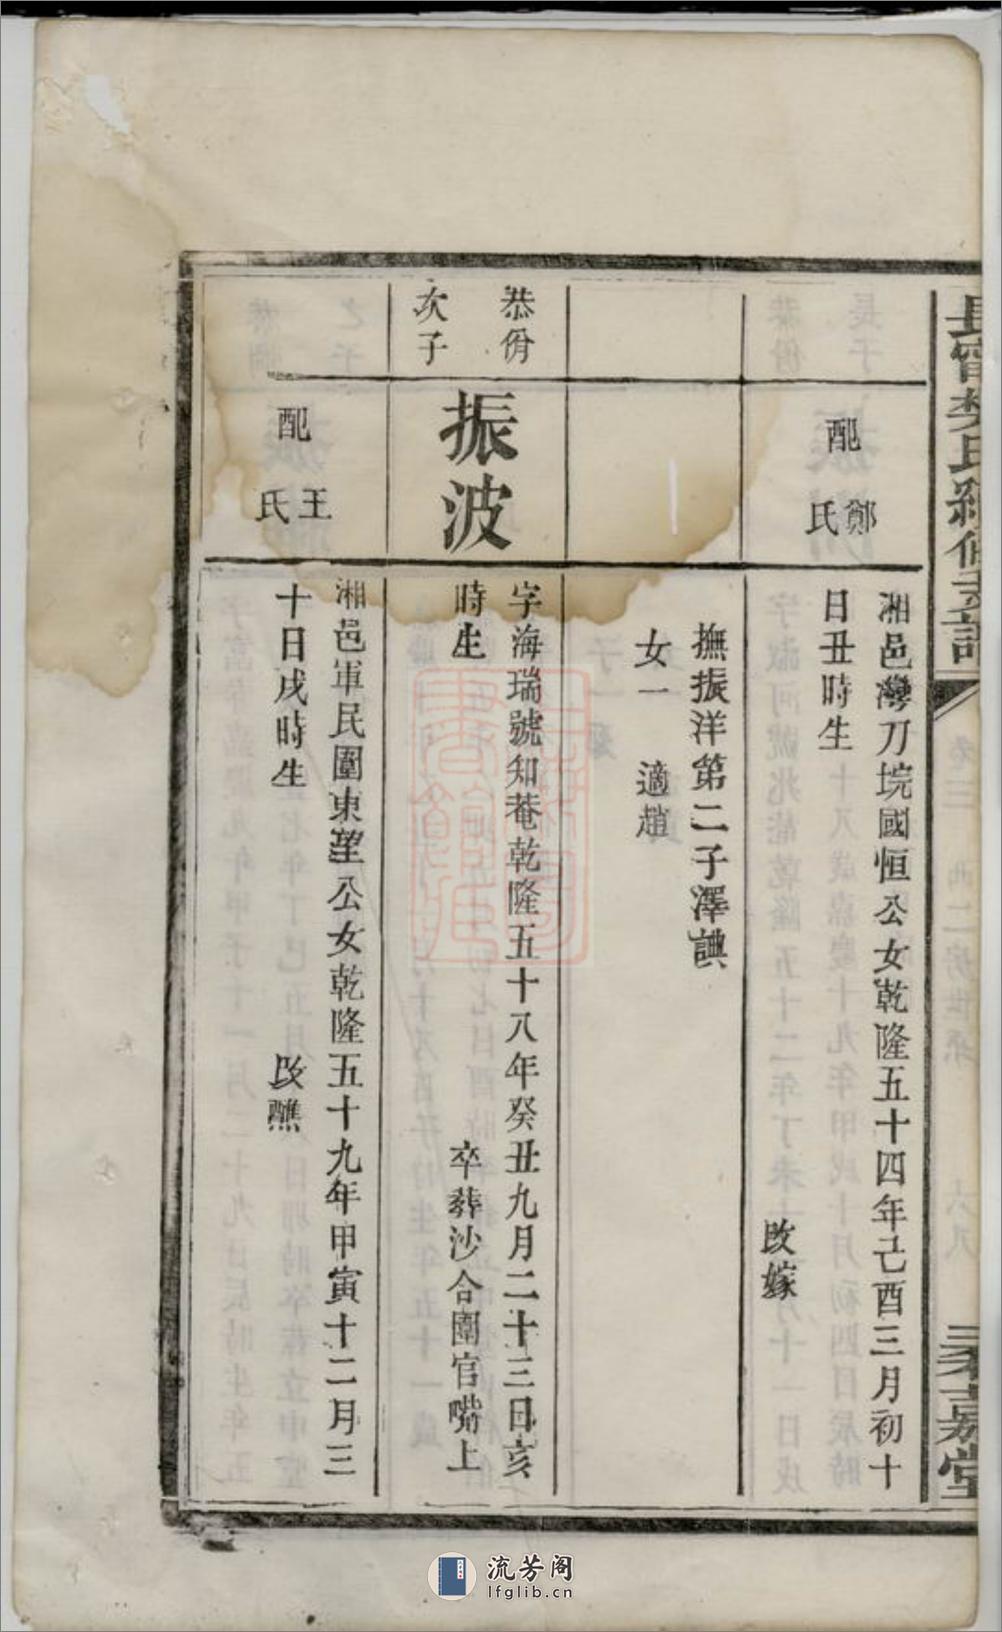 配鄭氏
湘邑灣刀垸國恒公女乾隆五十四年己酉三月初十
日丑時生
改嫁
撫振洋第二子澤讌
女一 適趙
恭俏
次子
振波
字海瑞號知菴乾隆五十八年癸丑九月二十三日亥
時生
卒葬沙合圍官嘴上
配王氏
湘邑軍民圍東望公女乾隆五十九年甲寅十二月三
十日戌時生
改醮
流芳阁
lfglib.cn